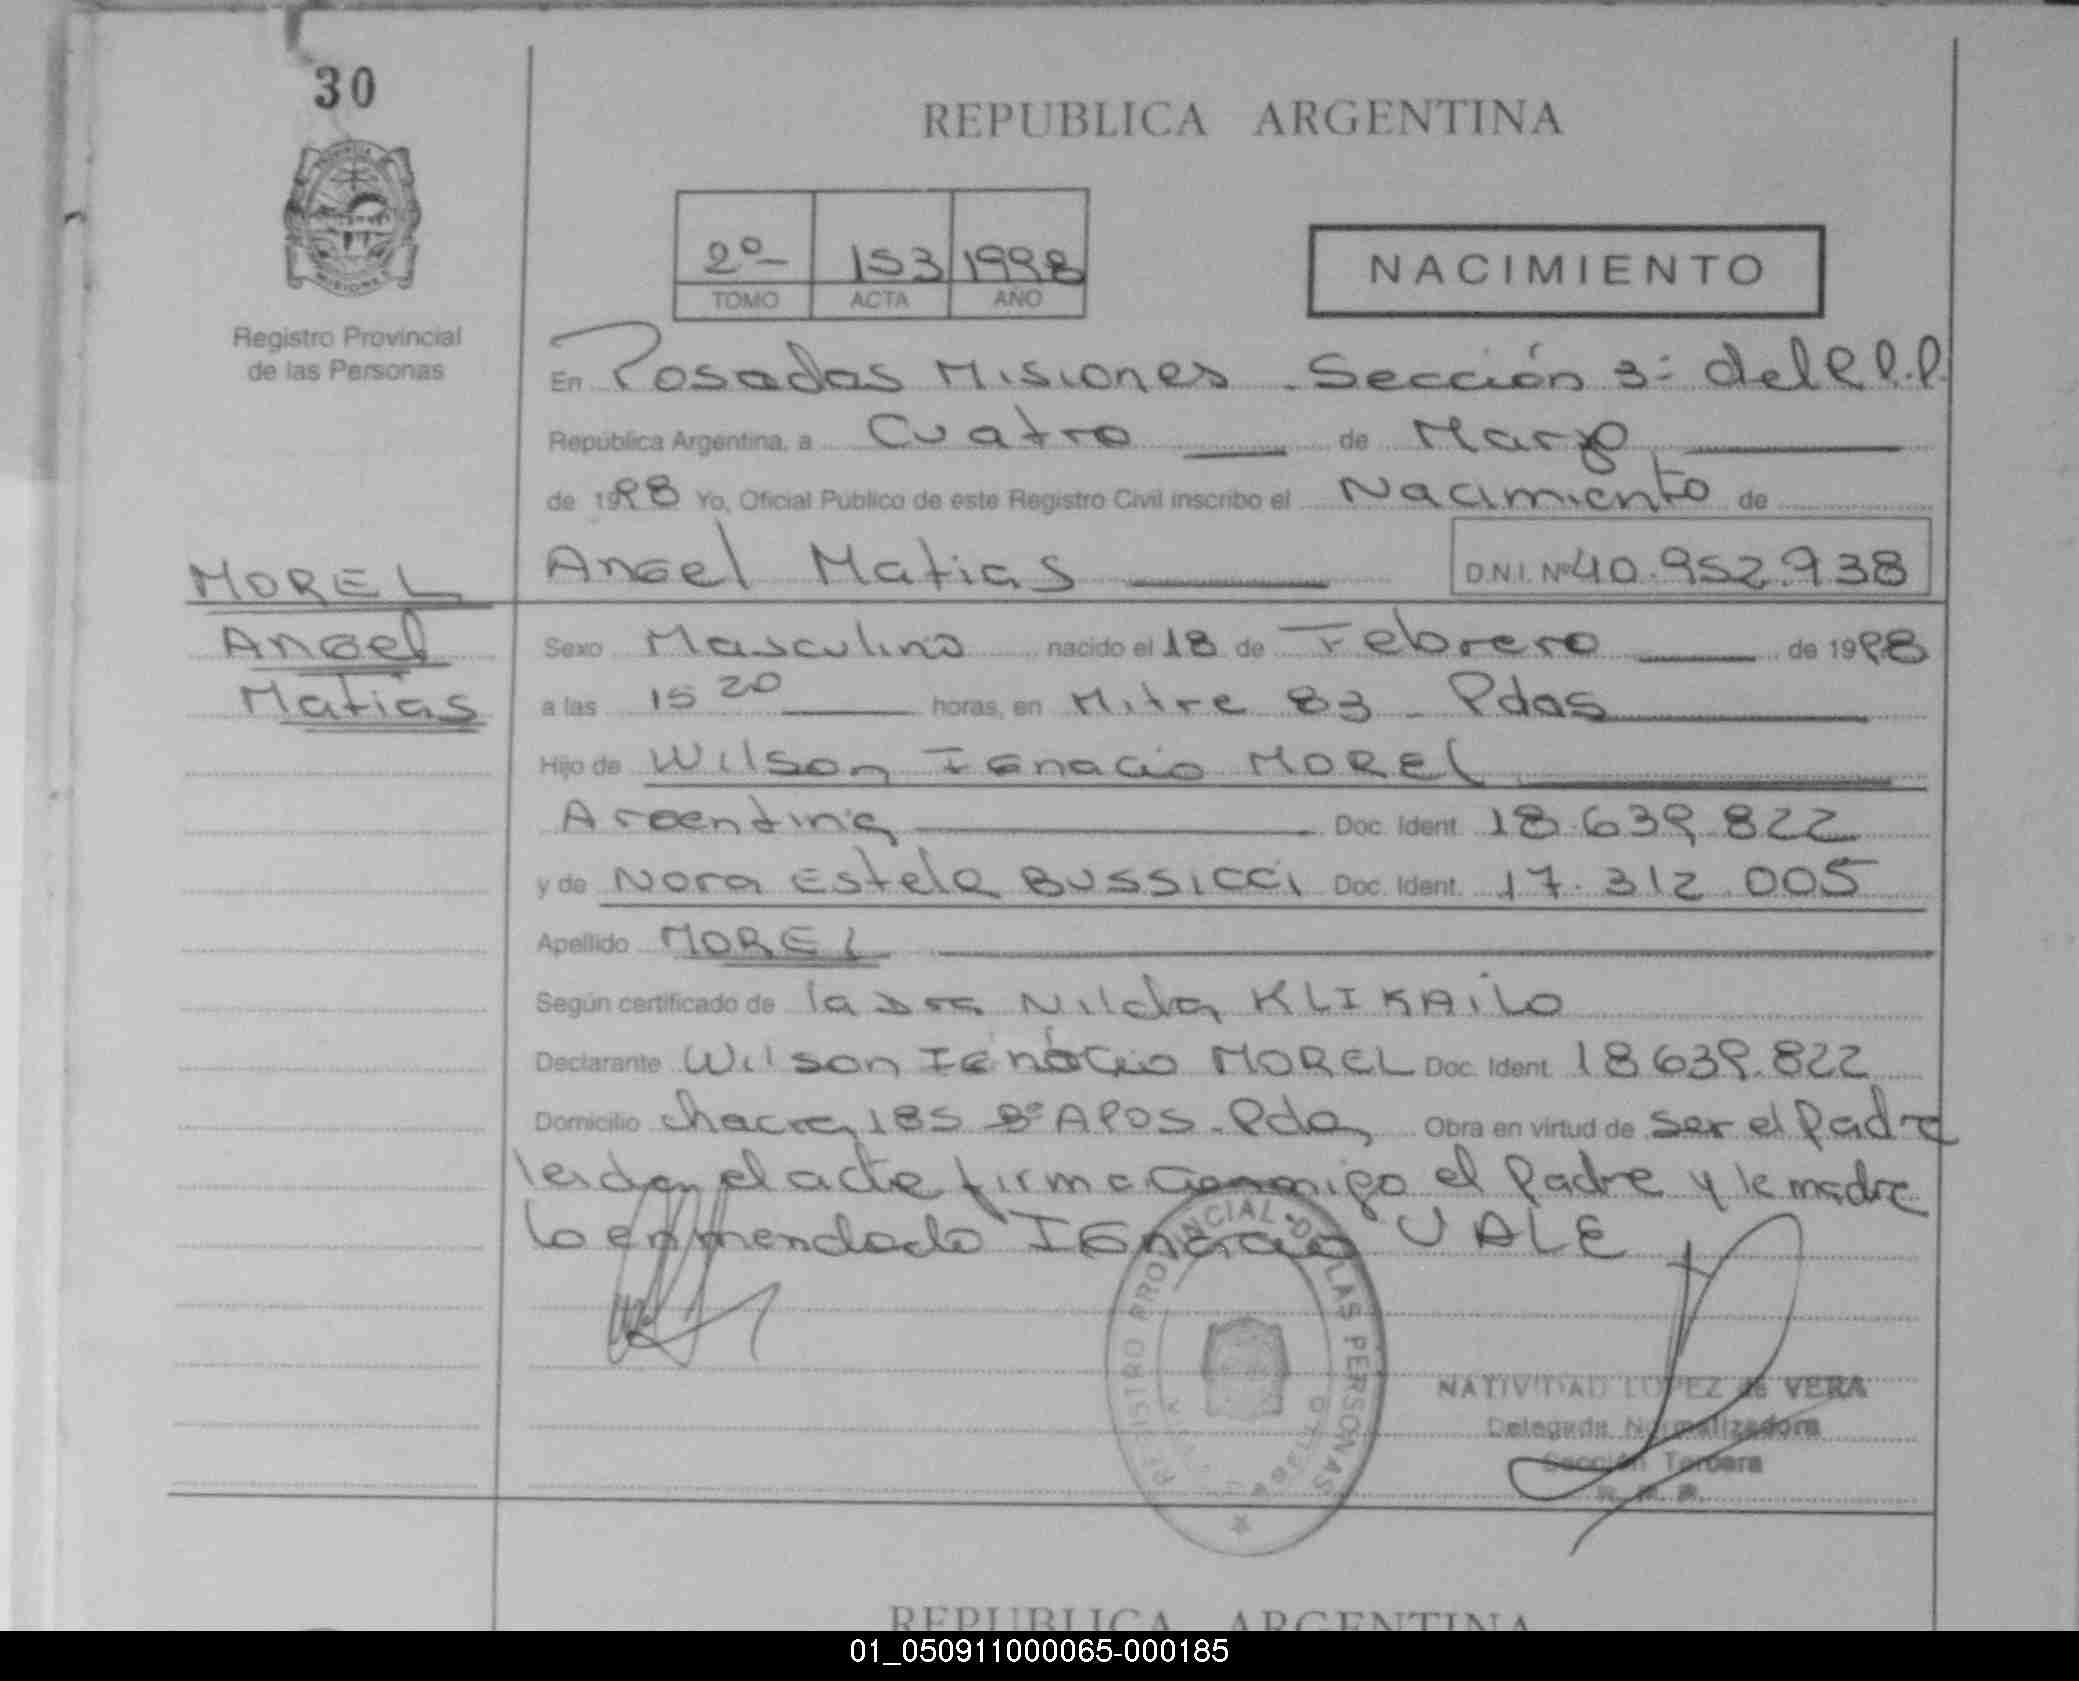 30
REPUBLICA ARGENTINA
2º 153 1998
TOMO ACTA AÑO
NACIMIENTO
Registro Provincial
de las Personas
En Posadas Misiones - Sección 3: del R.P.P.
República Argentina, a Cuatro de Marzo
de 1998 Yo, Oficial Público de este Registro Civil inscribo el Nacimiento de
Angel Matias D.N.I. Nº 40.952.938
MOREL
Angel
Matias
Sexo Masculino nacido el 18 de Febrero de 1998
a las 15 20 horas, en Mitre 83 - Pdas
Hijo de Wilson Ignacio MOREL
Argentina Doc. Ident. 18.639.822
y de Nora Estela BUSSICCI Doc. Ident. 17.312.005
Apellido MOREL
Según certificado de la Dra Nilda KLIKAILO
Declarante Wilson Ignacio MOREL Doc. Ident. 18.639.822
Domicilio chacra 185 Bº APOS - Pda Obra en virtud de ser el Padre
leida el acta firma conmigo el Padre y la madre
lo enmendado IGnacio VALE
REGISTRO PROVINCIAL DE LAS PERSONAS
NATIVIDAD LOPEZ de VERA
Delegada Normalizadora
Sección Tercera
R. P. P.
REPUBLICA ARGENTINA
01_050911000065-000185